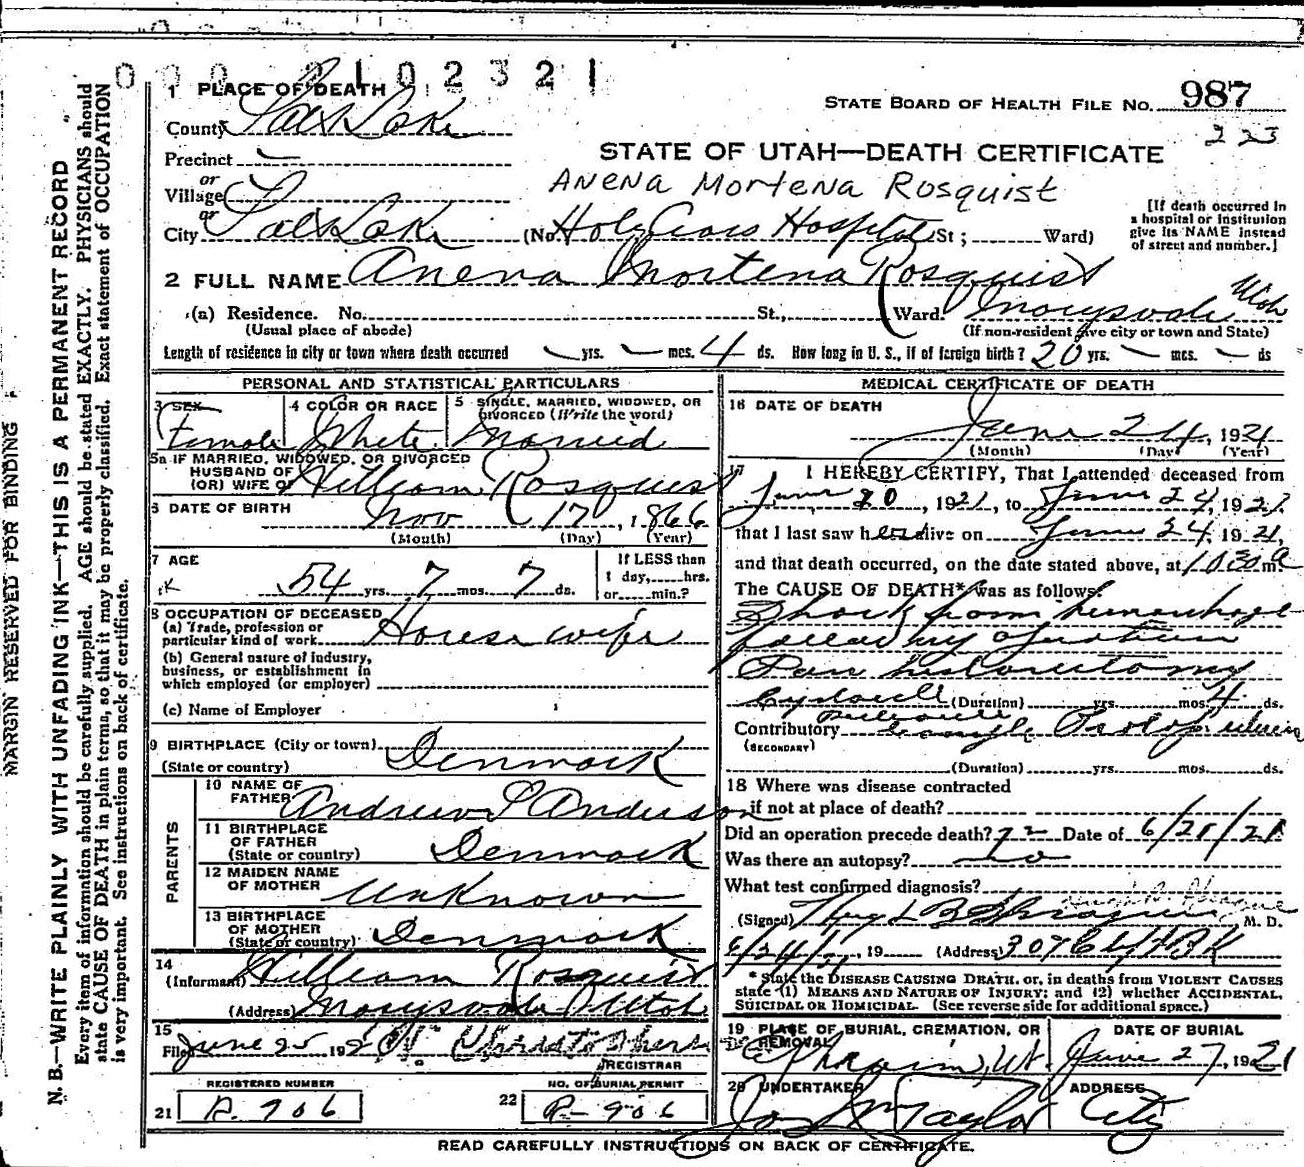 000 2102321
1 PLACE OF DEATH
STATE BOARD OF HEALTH FILE NO. 987
County Salt Lake
223
Precinct —
STATE OF UTAH—DEATH CERTIFICATE
or
Village
Anena Mortena Rosquist
or
City Salt Lake (No. Holy Cross Hospital St; Ward)
[If death occurred in
a hospital or institution
give its NAME instead
of street and number.]
2 FULL NAME Anena Mortena Rosquist
(a) Residence. No. St., Ward. Marysvale Utah
(Usual place of abode) (If non-resident give city or town and State)
Length of residence in city or town where death occurred — yrs. — mos. 4 ds. How long in U. S., if of foreign birth? 20 yrs. — mos. — ds
PERSONAL AND STATISTICAL PARTICULARS
3 SEX Female
4 COLOR OR RACE White
5 SINGLE, MARRIED, WIDOWED, OR DIVORCED (Write the word) Married
5a IF MARRIED, WIDOWED, OR DIVORCED
HUSBAND OF
(OR) WIFE OF William Rosquist
6 DATE OF BIRTH Nov 17, 1866
(Month) (Day) (Year)
7 AGE
54 yrs. 7 mos. 7 ds.
If LESS than
1 day, hrs.
or min.?
8 OCCUPATION OF DECEASED
(a) Trade, profession or
particular kind of work House wife
(b) General nature of industry,
business, or establishment in
which employed (or employer)
(c) Name of Employer
9 BIRTHPLACE (City or town)
(State or country) Denmark
PARENTS
10 NAME OF
FATHER Andrew P Anderson
11 BIRTHPLACE
OF FATHER
(State or country) Denmark
12 MAIDEN NAME
OF MOTHER Unknown
13 BIRTHPLACE
OF MOTHER
(State or country) Denmark
14
(Informant) William Rosquist
(Address) Marysvale Utah
15
Filed June 25, 192
REGISTRAR
REGISTERED NUMBER
21 R. 906
NO. OF BURIAL PERMIT
22 R-906
MEDICAL CERTIFICATE OF DEATH
16 DATE OF DEATH
June 24, 1921
(Month) (Day) (Year)
17 I HEREBY CERTIFY, That I attended deceased from
June 20, 1921, to June 24, 1921
that I last saw her alive on June 24, 1921,
and that death occurred, on the date stated above, at 1030 a m.
The CAUSE OF DEATH* was as follows:
Shock from hemorrhage
following operation
Pan histerectomy
(Duration) yrs. mos. 4 ds.
Contributory
(SECONDARY)
(Duration) yrs. mos. ds.
18 Where was disease contracted
if not at place of death?
Did an operation precede death? Date of 6/21/21
Was there an autopsy? no
What test confirmed diagnosis?
(Signed) Hugh B Sprague M. D.
6/24/21, 19 (Address)
* State the DISEASE CAUSING DEATH, or, in deaths from VIOLENT CAUSES
state (1) MEANS AND NATURE OF INJURY; and (2) whether ACCIDENTAL,
SUICIDAL OR HOMICIDAL. (See reverse side for additional space.)
19 PLACE OF BURIAL, CREMATION, OR
REMOVAL Ephraim, Ut.
DATE OF BURIAL
June 27, 1921
20 UNDERTAKER
Jos Wm Taylor
ADDRESS
City
READ CAREFULLY INSTRUCTIONS ON BACK OF CERTIFICATE.
MARGIN RESERVED FOR BINDING
N. B.—WRITE PLAINLY WITH UNFADING INK—THIS IS A PERMANENT RECORD
Every item of information should be carefully supplied. AGE should be stated EXACTLY. PHYSICIANS should
state CAUSE OF DEATH in plain terms, so that it may be properly classified. Exact statement of OCCUPATION
is very important. See instructions on back of certificate.